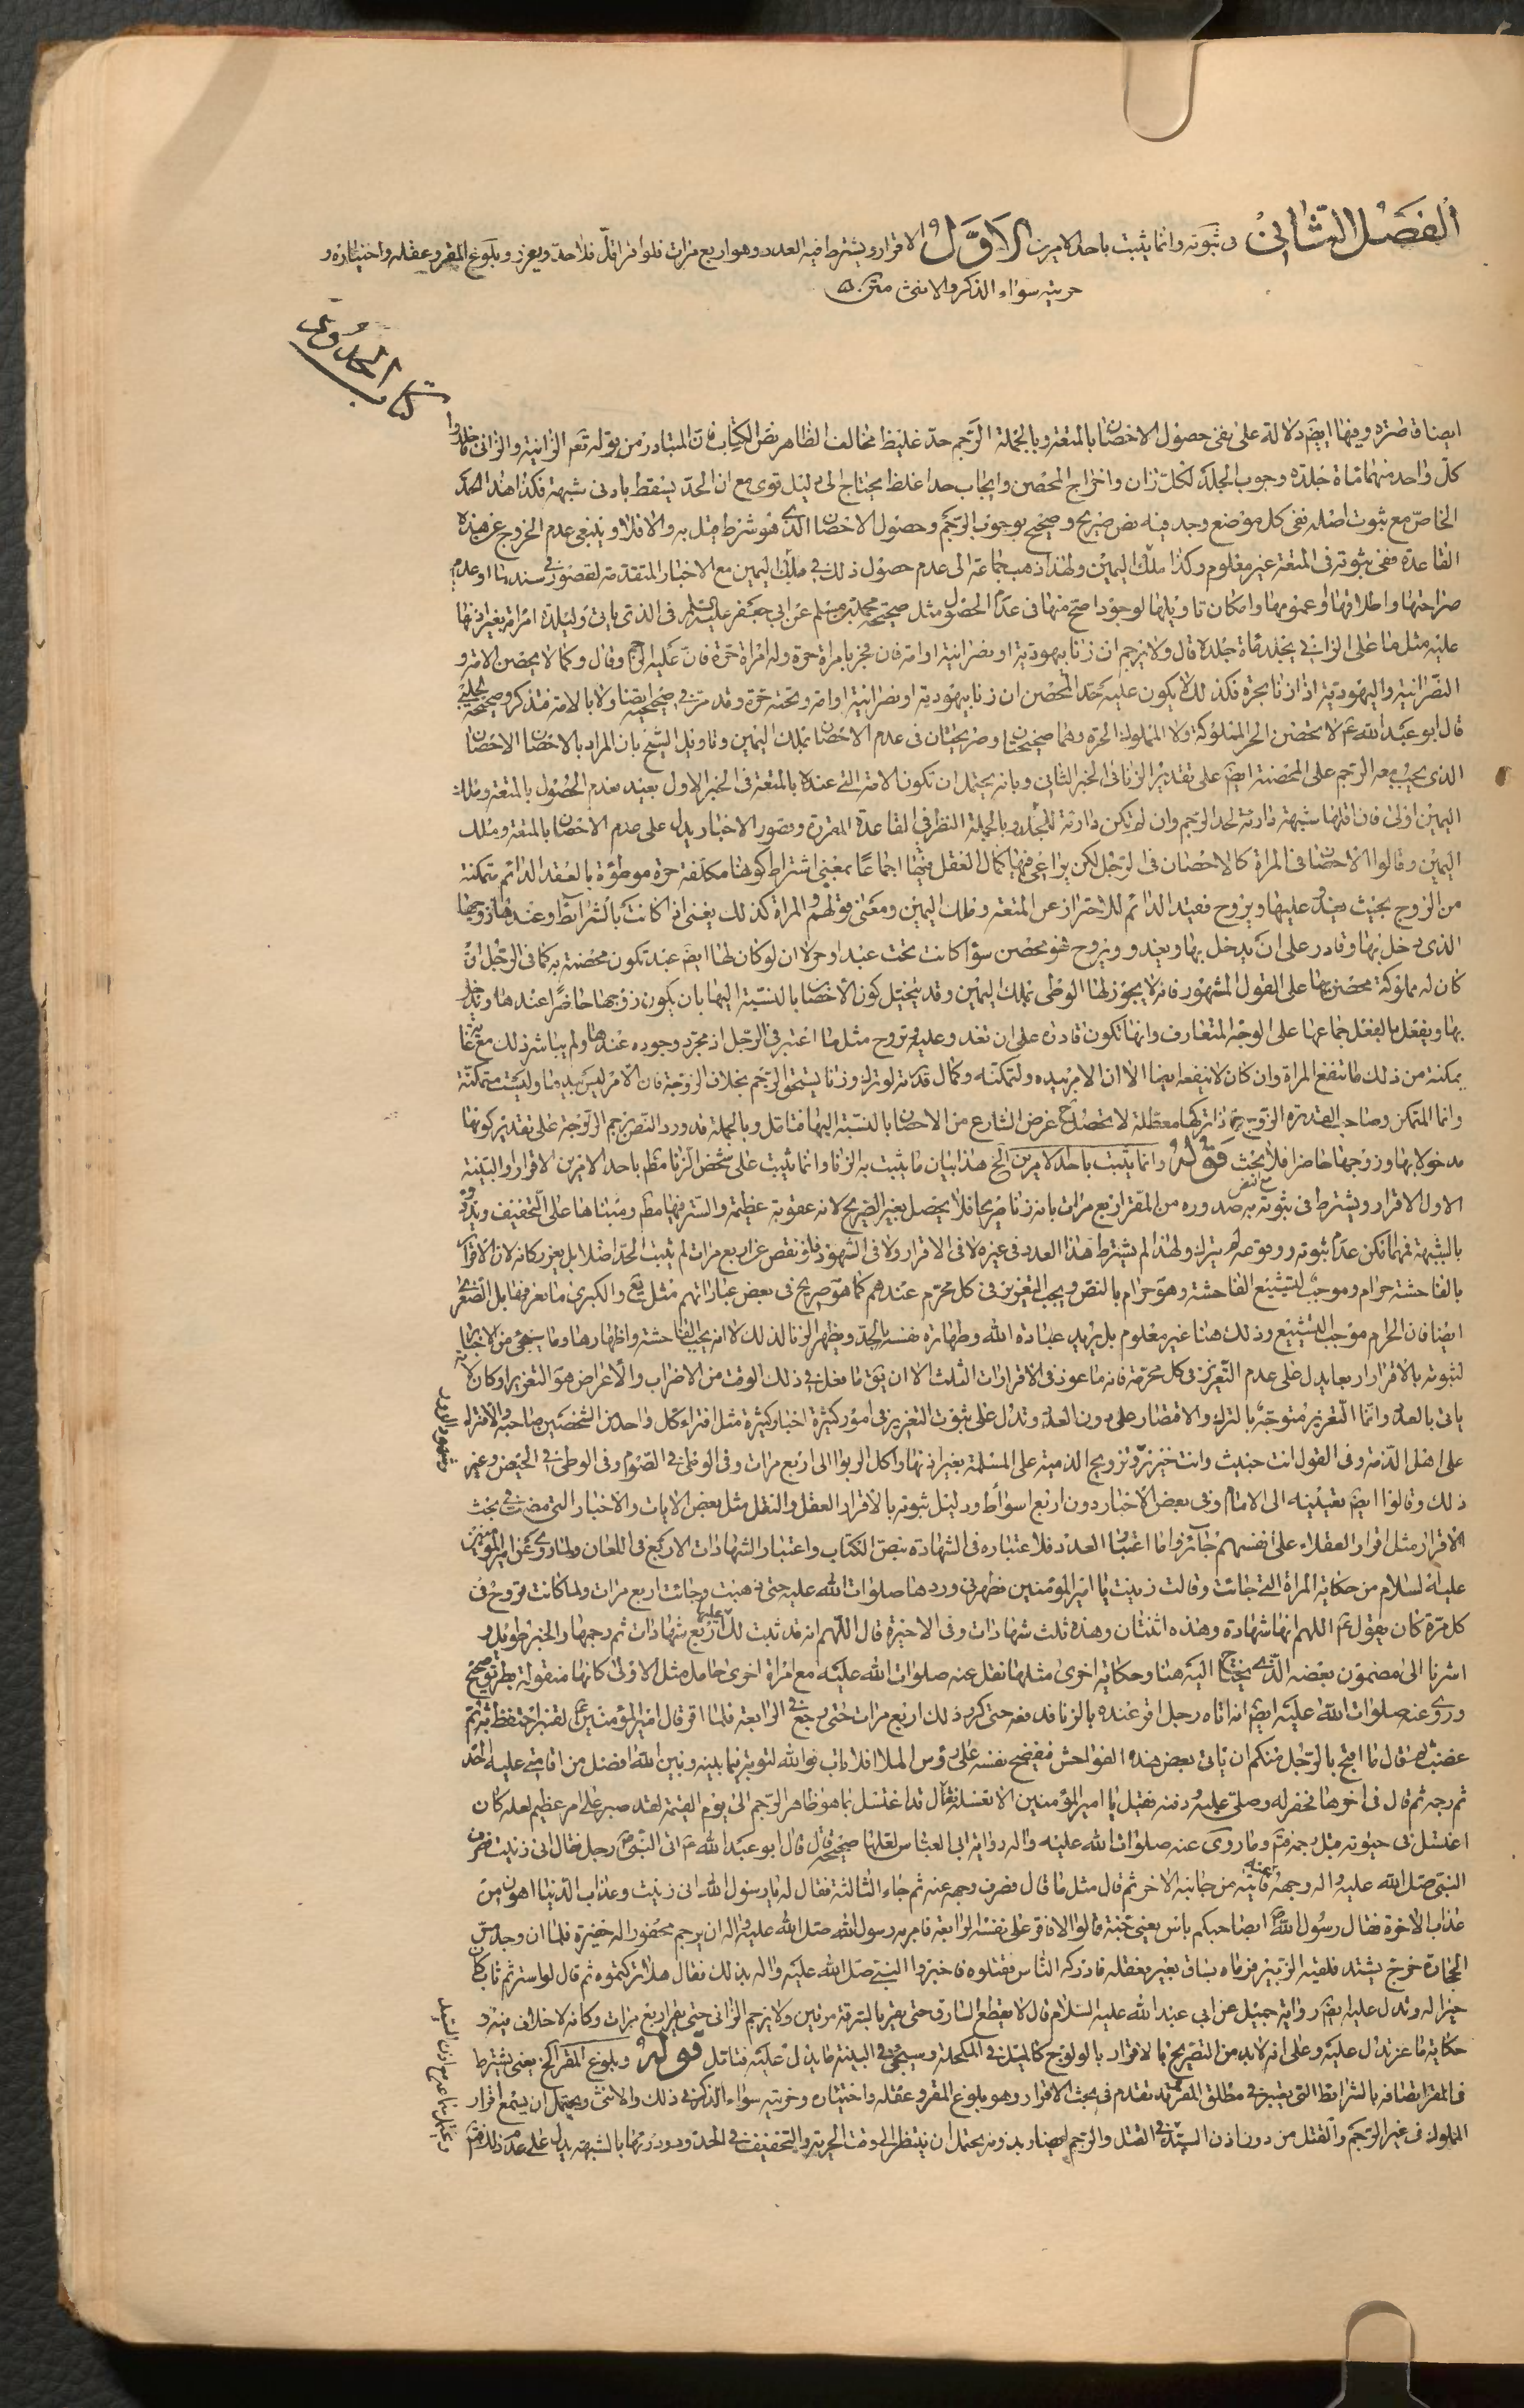 الفصل الثاني في ثبوته وانما يثبت باحد الامرين الاول الاقرار ويشترط فيه العدد وهو اربع مرات فلو اقر اقل فلا حد ويعزر وبلوغ المقر وعقله واختياره و
حريته سواء الذكر والانثى متن
كتاب الحدود
ايضا قاصرة وفيها ايضم دلالة على نفى حصول الاحصان بالمتعة وبالجملة الرجم حد غليظ مخالف الظاهر نص الكتاب فان المتبادر من قوله تعم الزانية والزانى فاجلدوا
كل واحد منهما مائة جلدة وجوب الجلد لكل زان واخراج المحصن وايجاب حد اغلظ يحتاج الى دليل قوى مع ان الحد يسقط بادنى شبهة فكذا هذا الحد
الخاص مع ثبوت اصله ففى كل موضع وجد فيه نص صريح وصحيح بوجوب الرجم وحصول الاحصان الذى هو شرط قيل به والا فلا وينبغى عدم الخروج عن هذه
القاعدة ففى ثبوته فى المتعة غير معلوم وكذا ملك اليمين ولهذا ذهب جماعة الى عدم حصول ذلك فى ملك اليمين مع الاخبار المتقدمة لقصور فى سندها او عدم
صراحتها واطلاقها او عمومها وامكان تاويلها لوجود اصح منها فى عدم الحصول مثل صحيحة محمد بن مسلم عن ابى جعفر عليه السلم فى الذى ياتى وليدة امراته بغير اذنها
عليه مثل ما على الزانى يجلد مائة جلدة قال ولا يرجم ان زنا بيهودية او نصرانية او امة فان فجر بامراة حرة وله امراة حرة فان عليه الرجم وقال وكما لا يحصن الامة و
النصرانية واليهودية اذا زنا بحرة فكذلك لا يكون عليه حد المحصن ان زنا بيهودية او نصرانية او امة وتحته حرة وقد مرت فى صحيحته ايضا ولا بالامة فتذكر وصحيحة الحلبى
قال ابو عبد الله ع لا يحصن الحر المملوكة ولا المملوك الحرة وهما صحيحتان وصريحتان فى عدم الاحصان بملك اليمين وتاويل الشيخ بان المراد بالاحصان الاحصان
الذى يجب معه الرجم على المحصنة ايضم على تقدير الزنا فى الخبر الثانى وبانه يحتمل ان تكون الامة التى عنده بالمتعة فى الخبر الاول بعيد بعدم الحصول بالمتعة وملك
اليمين اولى فان اقلها شبهة دارئة لحد الرجم وان لم تكن دارئة للجلد وبالجملة النظر فى القاعدة المقررة وقصور الاخبار يدل على عدم الاحصان بالمتعة وملك
اليمين وقالوا الاحصان فى المراة كالاحصان فى الرجل لكن يراعى فيها كمال العقل فيها اجماعا بمعنى اشتراط كونها مكلفة حرة موطؤة بالعقد الدائم متمكنة
من الزوج بحيث يغدو عليها ويروح فقيد الدائم للاحتراز عن المتعة وملك اليمين ومعنى قولهم والمراة كذلك يعنى اذا كانت بالشرايط وعندها زوجها
الذى دخل بها وقادر على ان يدخل بها ويغدو ويروح فهو محصن سواء كانت تحت عبد او حر لا ان لو كان لها ايضم عبد تكون محصنة به كما فى الرجل ان
كان له مملوكة محصن بها على القول المشهور فانه لا يجوز لها الوطى بملك اليمين وقد يتخيل كون الاحصان بالنسبة اليها بان يكون زوجها حاضرا عندها ويدخل
بها ويفعل بالفعل جماعها على الوجه المتعارف وانها تكون قادرة على ان تغدو عليه وتروح مثل ما اعتبر فى الرجل اذ مجرد وجوده عندها ولم يباشر ذلك مع
يمكنه من ذلك ما تنفع المراة وان كان لا ينفعه ايضا الا ان الامر بيده ولتمكنه وكمال قدرته لو ترك وزنا يستحق الرجم بخلاف الزوجة فان الامر ليس بيدها وليست متمكنة
وانما المتمكن وصاحب القدرة الزوج فاذا تركها معطلة لا تحصل غرض الشارع من الاحصان بالنسبة اليها فتامل وبالجملة قد ورد النص برجم الزوجة على تقدير كونها
مدخولا بها وزوجها حاضرا فلا بحث قوله وانما يثبت باحد الامرين الخ هذا بيان ما يثبت به الزنا وانما يثبت على شخص الزنا مطم باحد الامرين الاقرار والبينة
الاول الاقرار ويشترط فى ثبوته به صدوره من المقر اربع مرات بانه زنا صريحا فلا يحصل بغير الصريح لانه عقوبة عظيمة والستر فيها مطم ومبناها على التخفيف ويدرؤ
بالشبهة فمهما امكن عدم ثبوته ووقوعه لم يترك ولهذا لم يشترط هذا العدد فى غيره لا فى الاقرار ولا فى الشهود فلو نقص عن اربع مرات لم يثبت الحد اصلا بل يعزر كانه لان الاقرار
بالفاحشة حرام وموجب لتشييع الفاحشة وهو حرام بالنص ويجب التعزير فى كل محرم عندهم كما هو صريح فى بعض عباراتهم مثل يع والكبرى ما نعرف مقابل الصغرى
ايضا فان الحرام موجب التشييع وذلك هنا غير معلوم بل يريد عبادة الله وطهارة نفسه بالحد ويظهر الزنا لذلك لا انه يحب الفاحشة واظهارها وما سيجئ من الاخبار
لثبوته بالاقرار اربعا يدل على عدم التعزير فى كل محرمة فانه ما عوذ فى الاقرارات الثلث الا ان يق ما فعل فى ذلك الوقت من الاضراب والاعراض هو التعزير او كان لانه
ياتى بالعدد وانما التعزير متوجه بالترك والاقتصار على دون العدد وتدل على ثبوت التعزير فى امور كثيرة اخبار كثيرة مثل افتراء كل واحد من الشخصين صاحبه والافتراء
على اهل الذمة وفى القول انت خبيث وانت خنزير وتزويج الذمية على المسلمة بغير اذنها واكل الربوا الى اربع مرات وفى الوطى فى الصوم وفى الوطى فى الحيض وغير
ذلك وقالوا ايضم تعيينه الى الامام وفى بعض الاخبار دون اربع اسواط ودليل ثبوته بالاقرار العقل والنقل مثل بعض الايات والاخبار التى مضت فى بحث
الاقرار مثل اقرار العقلاء على انفسهم جائز واما اعتبار العدد فلاعتباره فى الشهادة بنص الكتاب واعتبار الشهادات الاربع فى اللعان ولما روى عن امير المؤمنين
عليه السلام من حكاية المراة التى جائت وقالت زنيت يا امير المؤمنين طهرنى وردها صلوات الله عليه حتى ذهبت وجائت اربع مرات ولما كانت تروح فى
كل مرة كان يقول ع اللهم انها شهادة وهذه اثنتان وهذه ثلث شهادات وفى الاخيرة قال اللهم انه قد ثبت لك عليها اربع شهادات ثم رجمها والخبر طويل و
اشرنا الى مضمون بعضه الذى يحتاج اليه هنا وحكاية اخرى مثلها نقل عنه صلوات الله عليه مع امراة اخرى حامل مثل الاولى كانها منقولة بطريق صحيح
وروى عنه صلوات الله عليه ايضم انه اتاه رجل اقر عنده بالزنا فدفعه حتى كرر ذلك اربع مرات حتى رجع فى الرابعة فلما اقر قال امير المؤمنين ع لقنبر احتفظ به ثم
غضب ثم قال ما اقبح بالرجل منكم ان ياتى بعض هذه الفواحش فيفضح نفسه على رؤس الملا افلا تاب فوالله لتوبته فيما بينه وبين الله افضل من اقامتى عليه الحد
ثم رجمه ثم قال فى اخرها فحفر له وصلى عليه ودفنه فقيل يا امير المؤمنين الا تغسله فقال قد اغتسل بما هو طاهر الرجم الى يوم القيمة لقد صبر على امر عظيم لعله كان
اغتسل فى حيوته قبل رجمه وما روى عنه صلوات الله عليه واله رواية ابى العباس لعلها صحيحة قال قال ابو عبد الله ع اتى النبى ص رجل فقال انى زنيت فصرف
النبى صلى الله عليه واله وجهه عنه فاتيه من جانبه الاخر ثم قال مثل ما قال فصرف وجهه عنه ثم جاء الثالثة فقال له يا رسول الله انى زنيت وعذاب الدنيا اهون من
عذاب الاخرة فقال رسول الله ص ابصاحبكم باس يعنى جنة قالوا لا فاقر على نفسه الرابعة فامر به رسول الله صلى الله عليه واله ان يرجم فحفروا له حفيرة فلما ان وجد مس
الحجارة خرج يشتد فلقيه الزبير فرماه بساق بعير فعقله فادركه الناس فقتلوه فاخبروا النبى صلى الله عليه واله بذلك فقال هلا تركتموه ثم قال لو استتر ثم تاب كان
خيرا له وتدل عليه ايضم رواية جميل عن ابى عبد الله عليه السلام قال لا يقطع السارق حتى يقر بالسرقة مرتين ولا يرجم الزانى حتى يقر اربع مرات وكانه لا خلاف فيه و
حكاية ماعز تدل عليه وعلى انه لا بد من التصريح بالاقرار بالولوج كالميل فى المكحلة وسيجئ فى البينة ما يدل عليه فتامل قوله وبلوغ المقر الخ يعنى يشترط
فى المقر اتصافه بالشرايط التى يعتبر فى مطلق المقر قد تقدم فى بحث الاقرار وهو بلوغ المقر وعقله واختياره وحريته سواء الذكر فى ذلك والانثى ويحتمل ان يسمع اقرار
المملوك فى غير الرجم والقتل من دون اذن السيد وفى القتل والرجم ايضا وبدونه يحتمل ان ينتظر الى وقت الحرية والتخفيف فى الحد ودرؤها بالشبهة يدل على عدم ذلك